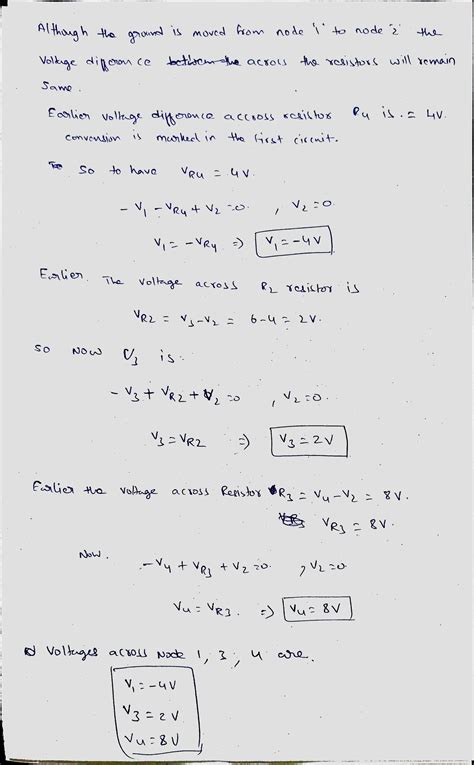 Although the ground is moved from node '1' to node '2' the
Voltage difference across the resistors will remain
same.
Earlier voltage difference accross resistor R4 is. = 4V.
convension is marked in the first circuit.
So to have VR4 = 4V.
-V1 - VR4 + V2 = 0. , V2 = 0.
V1 = -VR4 => V1 = -4V
Earlier. The voltage across R2 resistor is
VR2 = V3 - V2 = 6-4 = 2V.
SO NOW V3 is.
-V3 + VR2 + V2 = 0 , V2 = 0.
V3 = VR2 => V3 = 2V
Earlier the voltage across Resistor R3 = V4 - V2 = 8V.
VR3 = 8V.
Now.
-V4 + VR3 + V2 = 0. , V2 = 0
V4 = VR3. => V4 = 8V
Voltages across Node 1, 3, 4 are.
V1 = -4V
V3 = 2V
V4 = 8V